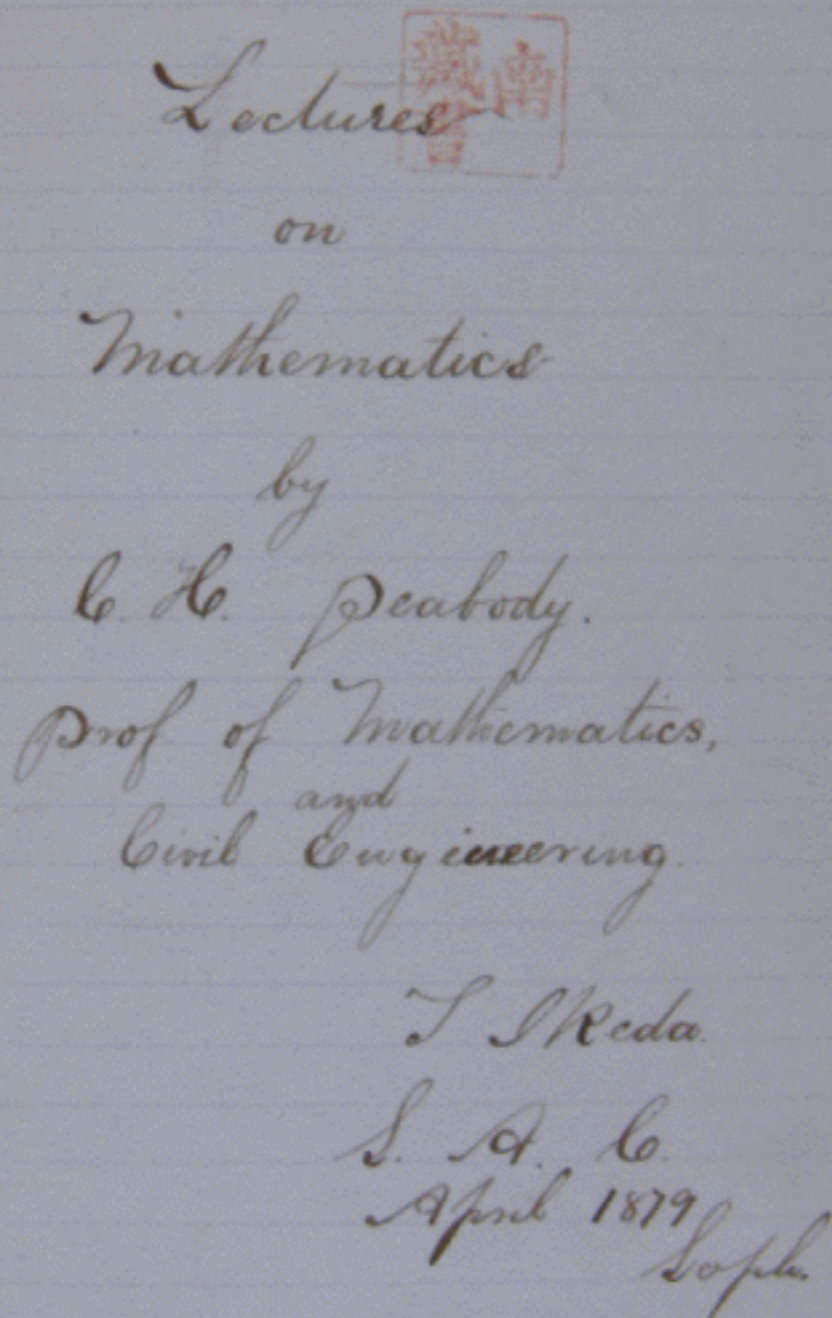 Lectures
on
Mathematics
by
C. H. Peabody.
Prof of Mathematics,
and
Civil Engineering.
T Ikeda.
S. A. C.
April 1879
Soph.